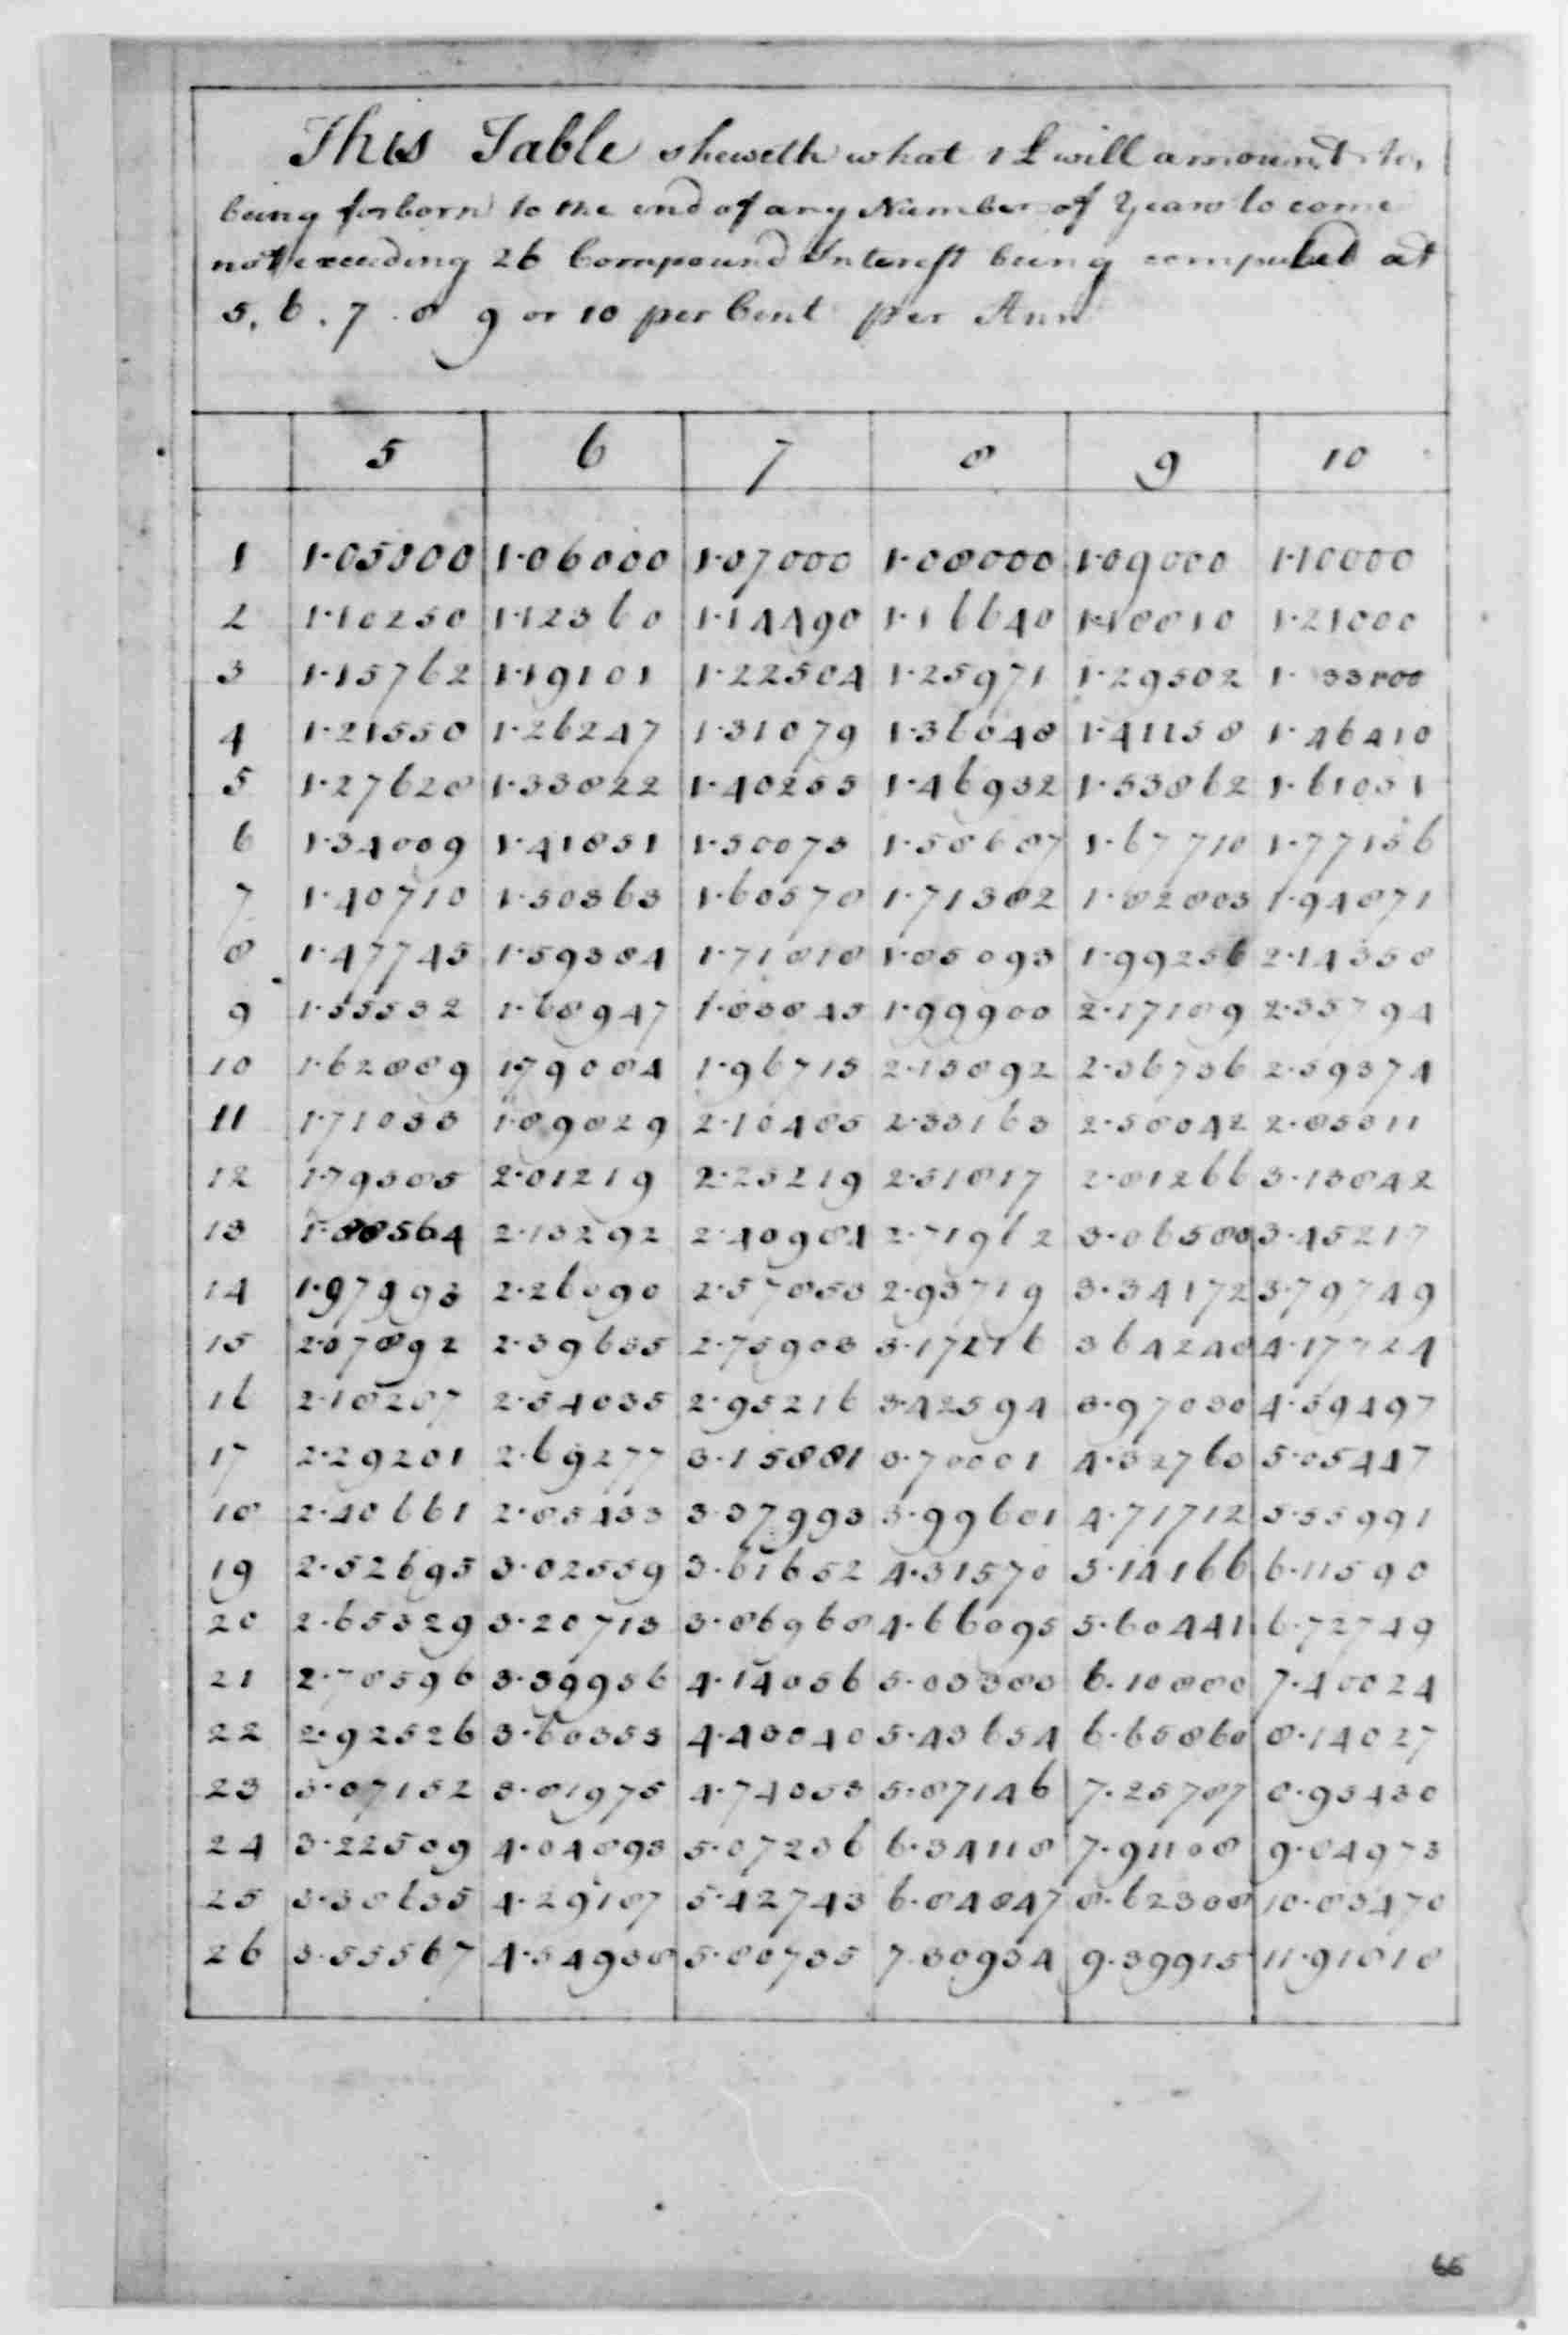 This Table sheweth what 1 £ will amount to,
being forborn to the end of any Number of Years to come
not exceeding 26 Compound Interest being computed at
5, 6, 7. 8 9 or 10 per Cent per Ann
5 6 7 8 9 10
1 1.05000 1.06000 1.07000 1.08000 1.09000 1.10000
2 1.10250 1.12360 1.14490 1.16640 1.18810 1.21000
3 1.15762 1.19101 1.22504 1.25971 1.29502 1.33100
4 1.21550 1.26247 1.31079 1.36048 1.41158 1.46410
5 1.27628 1.33822 1.40255 1.46932 1.53862 1.61051
6 1.34009 1.41851 1.50073 1.58687 1.67710 1.77156
7 1.40710 1.50363 1.60578 1.71382 1.82803 1.94871
8 1.47745 1.59384 1.71818 1.85093 1.99256 2.14358
9 1.55532 1.68947 1.83845 1.99900 2.17189 2.35794
10 1.62889 1.79084 1.96715 2.15892 2.36736 2.59374
11 1.71033 1.89829 2.10485 2.33163 2.58042 2.85311
12 1.79585 2.01219 2.25219 2.51817 2.81266 3.13842
13 1.88564 2.13292 2.40984 2.71962 3.06580 3.45217
14 1.97993 2.26090 2.57853 2.93719 3.34172 3.79749
15 2.07892 2.39655 2.75903 3.17216 3.64248 4.17724
16 2.18287 2.54035 2.95216 3.42594 3.97030 4.59497
17 2.29201 2.69277 3.15881 3.70001 4.32763 5.05447
18 2.40661 2.85433 3.37993 3.99601 4.71712 5.55991
19 2.52695 3.02559 3.61652 4.31570 5.14166 6.11590
20 2.65329 3.20713 3.86968 4.66095 5.60441 6.72749
21 2.78596 3.39956 4.14056 5.03383 6.10880 7.40024
22 2.92526 3.60353 4.43040 5.43654 6.65860 8.14027
23 3.07152 3.81975 4.74053 5.87146 7.25787 8.95430
24 3.22509 4.04893 5.07236 6.34118 7.91108 9.84973
25 3.38635 4.29187 5.42743 6.84847 8.62308 10.83470
26 3.55567 4.54938 5.80735 7.30934 9.39915 11.91818
66